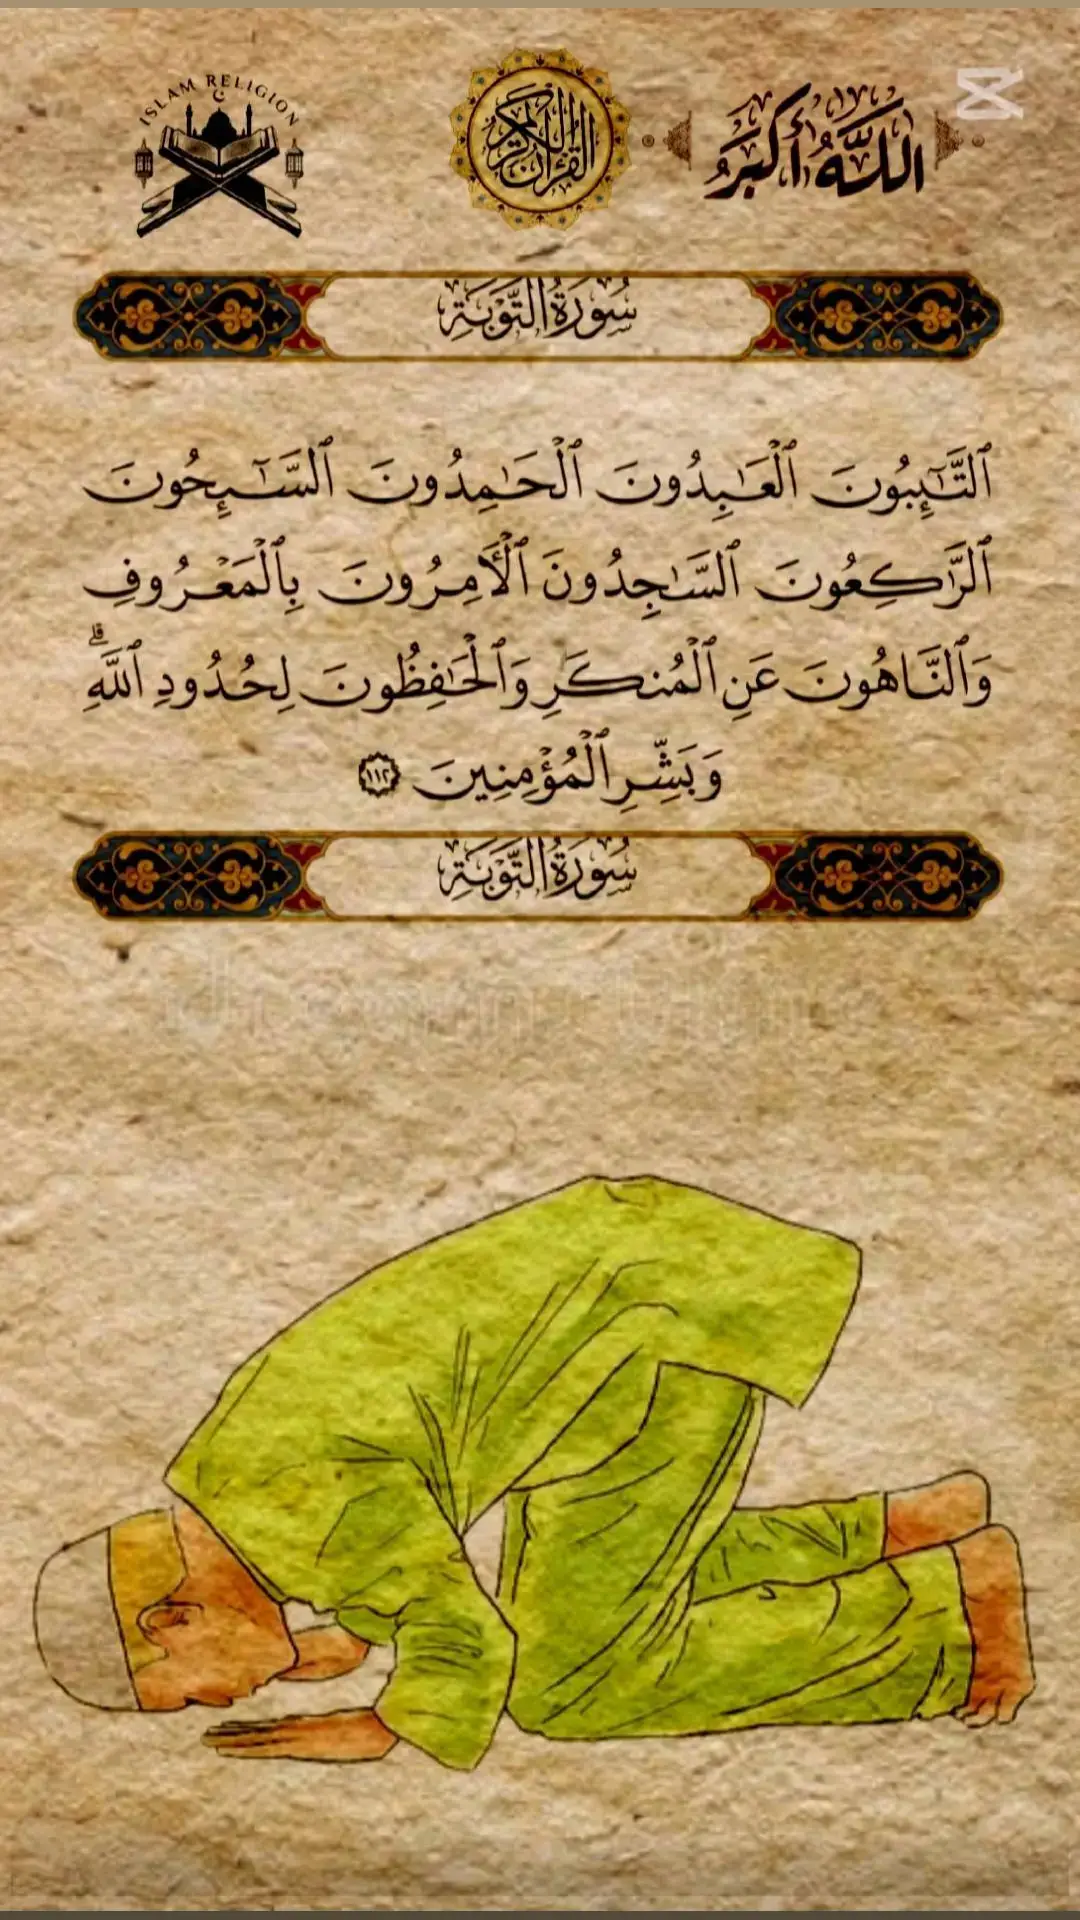 ISLAM RELIGION
القرآن الكريم
اللَّهُ أَكْبَرُ
سُورَةُ التَّوْبَةِ
ٱلتَّـٰٓئِبُونَ ٱلْعَـٰبِدُونَ ٱلْحَـٰمِدُونَ ٱلسَّـٰٓئِحُونَ
ٱلرَّٰكِعُونَ ٱلسَّـٰجِدُونَ ٱلْأَمِرُونَ بِٱلْمَعْرُوفِ
وَٱلنَّاهُونَ عَنِ ٱلْمُنكَرِ وَٱلْحَـٰفِظُونَ لِحُدُودِ ٱللَّهِ ۗ
وَبَشِّرِ ٱلْمُؤْمِنِينَ ١١٢
سُورَةُ التَّوْبَةِ